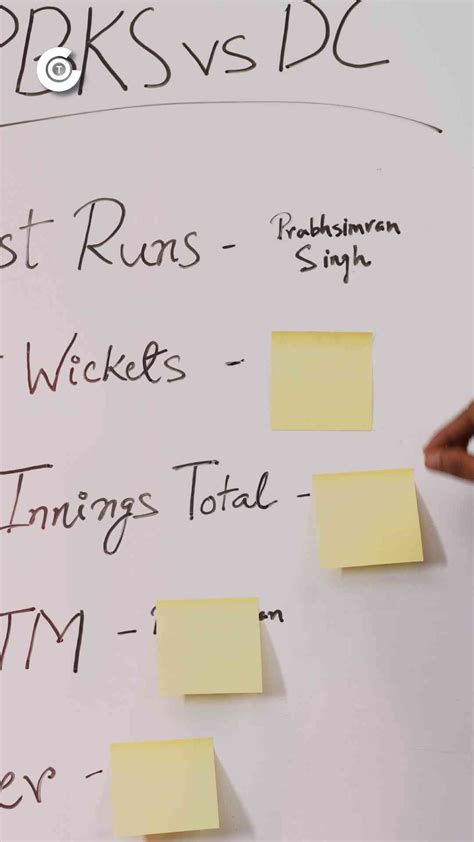 PBKS vs DC
st Runs - Prabhsimran
Singh
Wickets -
Innings Total -
TM -
er -